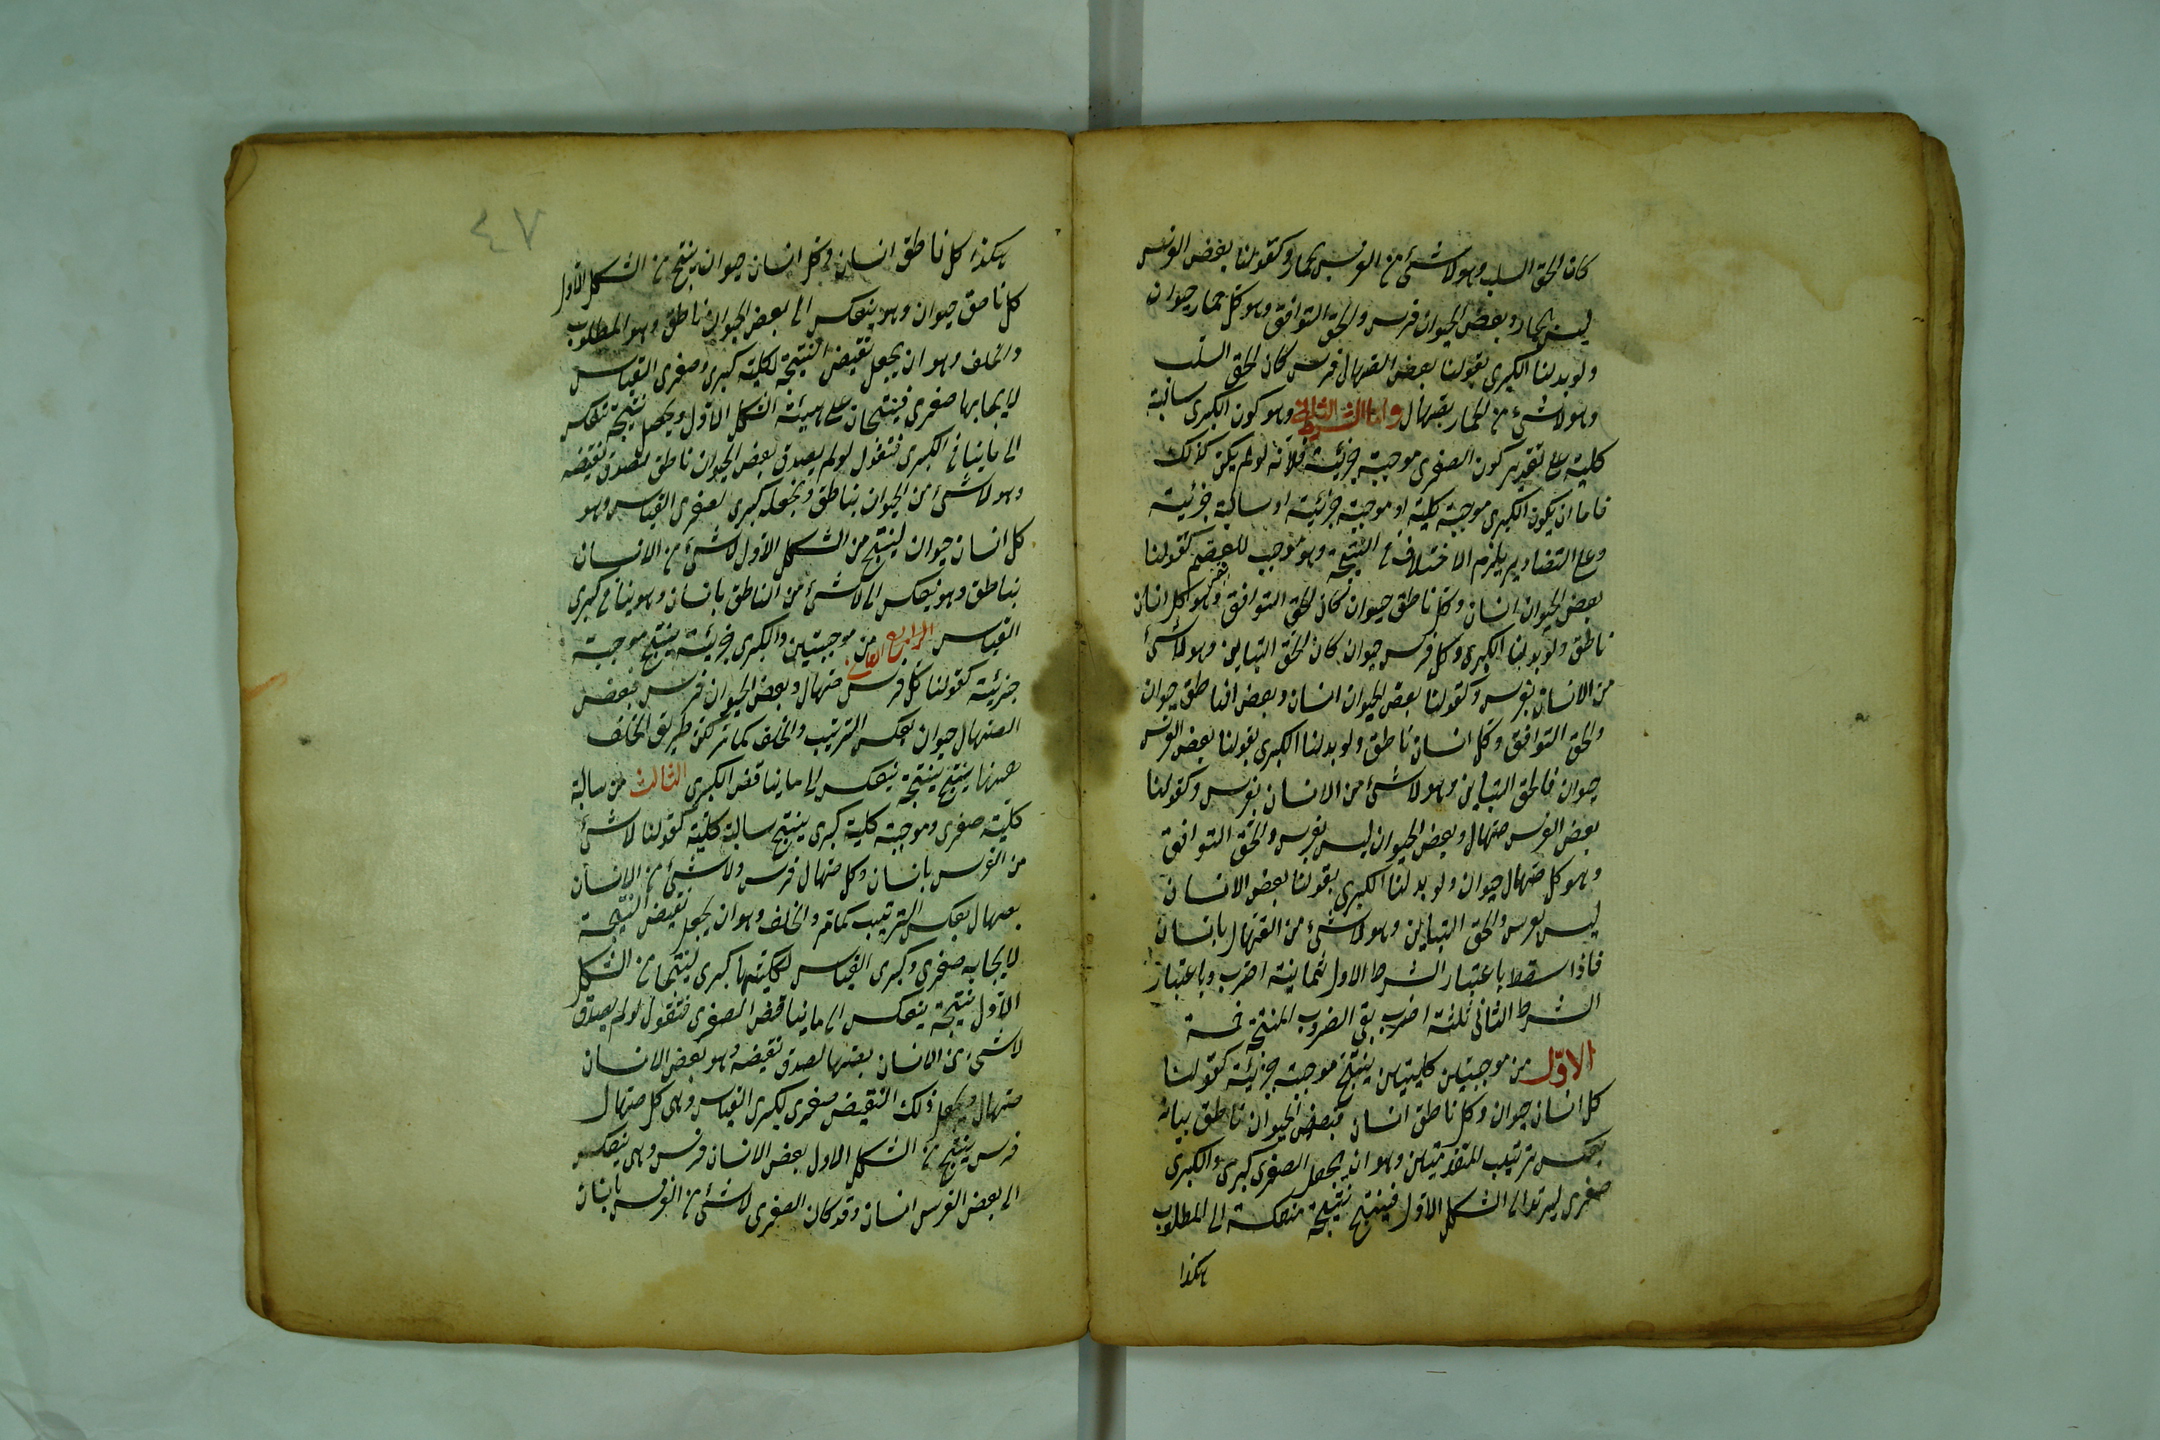 كان الحق السلب وهو لا شئ من الفرس بحمار وكقولنا بعض الفرس
ليس بحمار وبعض الحيوان فرس والحق التوافق وهو كل حمار حيوان
ولو بدلنا الكبرى بقولنا بعض الصهال فرس كان الحق السلب
وهو لا شئ من الحمار بصهال واما الشرط الثانى وهو كون الكبرى سالبة
كلية على تقدير كون الصغرى موجبة جزئية فلانه لو لم يكن كذلك
فاما ان يكون الكبرى موجبة كلية او موجبة جزئية او سالبة جزئية
وعلى التقادير يلزم الاختلاف فى النتيجة وهو موجب للعقم كقولنا
بعض الحيوان انسان وكل ناطق حيوان كان الحق التوافق وهو كل انسان
ناطق ولو بدلنا الكبرى وكل فرس حيوان كان الحق التباين وهو لا شئ
من الانسان بفرس وكقولنا بعض الحيوان انسان وبعض الناطق حيوان
والحق التوافق وكل انسان ناطق ولو بدلنا الكبرى بقولنا بعض الفرس
حيوان فالحق التباين وهو لا شئ من الانسان بفرس وكقولنا
بعض الفرس صهال وبعض الحيوان ليس بفرس والحق التوافق
وهو كل صهال حيوان ولو بدلنا الكبرى بقولنا بعض الانسان
ليس بفرس والحق التباين وهو لا شئ من الصهال بانسان
فاذا سقط باعتبار الشرط الاول ثمانية اضرب وباعتبار
الشرط الثانى ثلثة اضرب بقى الضروب المنتجة خمسة
الاول من موجبتين كليتين ينتج موجبة جزئية كقولنا
كل انسان حيوان وكل ناطق انسان فبعض الحيوان ناطق بيانه
بعكس ترتيب المقدمتين وهو ان يجعل الصغرى كبرى والكبرى
صغرى ليرتد الى الشكل الاول فينتج نتيجة منعكسة الى المطلوب
هكذا
٤٧
هكذا كل ناطق انسان وكل انسان حيوان ينتج من الشكل الاول
كل ناطق حيوان وهو ينعكس الى بعض الحيوان ناطق وهو المطلوب
والخلف وهو ان يجعل نقيض النتيجة لكليته كبرى وصغرى القياس
لايجابها صغرى فينتجان على هيئة الشكل الاول ويحصل نتيجة تنعكس
الى ما ينافى الكبرى فنقول لو لم يصدق بعض الحيوان ناطق لصدق نقيضه
وهو لا شئ من الحيوان بناطق ونجعله كبرى لصغرى القياس وهو
كل انسان حيوان لينتج من الشكل الاول لا شئ من الانسان
بناطق وهو ينعكس الى لا شئ من الناطق بانسان وهو ينافى كبرى
القياس الثانى من موجبتين والكبرى جزئية ينتج موجبة
جزئية كقولنا كل فرس صهال وبعض الحيوان فرس فبعض
الصهال حيوان بعكس الترتيب والخلف كما مر لكن طريق الخلف
ههنا ينتج نتيجة ينعكس الى ما يناقض الكبرى الثالث من سالبة
كلية صغرى وموجبة كلية كبرى ينتج سالبة كلية كقولنا لا شئ
من الفرس بانسان وكل صهال فرس ولا شئ من الانسان
بصهال بعكس الترتيب كما مر والخلف وهو ان يجعل نقيض النتيجة
لايجابه صغرى وكبرى القياس لكليتها كبرى لينتجا من الشكل
الاول نتيجة ينعكس الى ما يناقض الصغرى فنقول لو لم يصدق
لا شئ من الانسان بصهال لصدق نقيضه وهو بعض الانسان
صهال ونجعل ذلك النقيض صغرى لكبرى القياس وهى كل صهال
فرس ينتج من الشكل الاول بعض الانسان فرس وهى ينعكس
الى بعض الفرس انسان وقد كان الصغرى لا شئ من الفرس بانسان